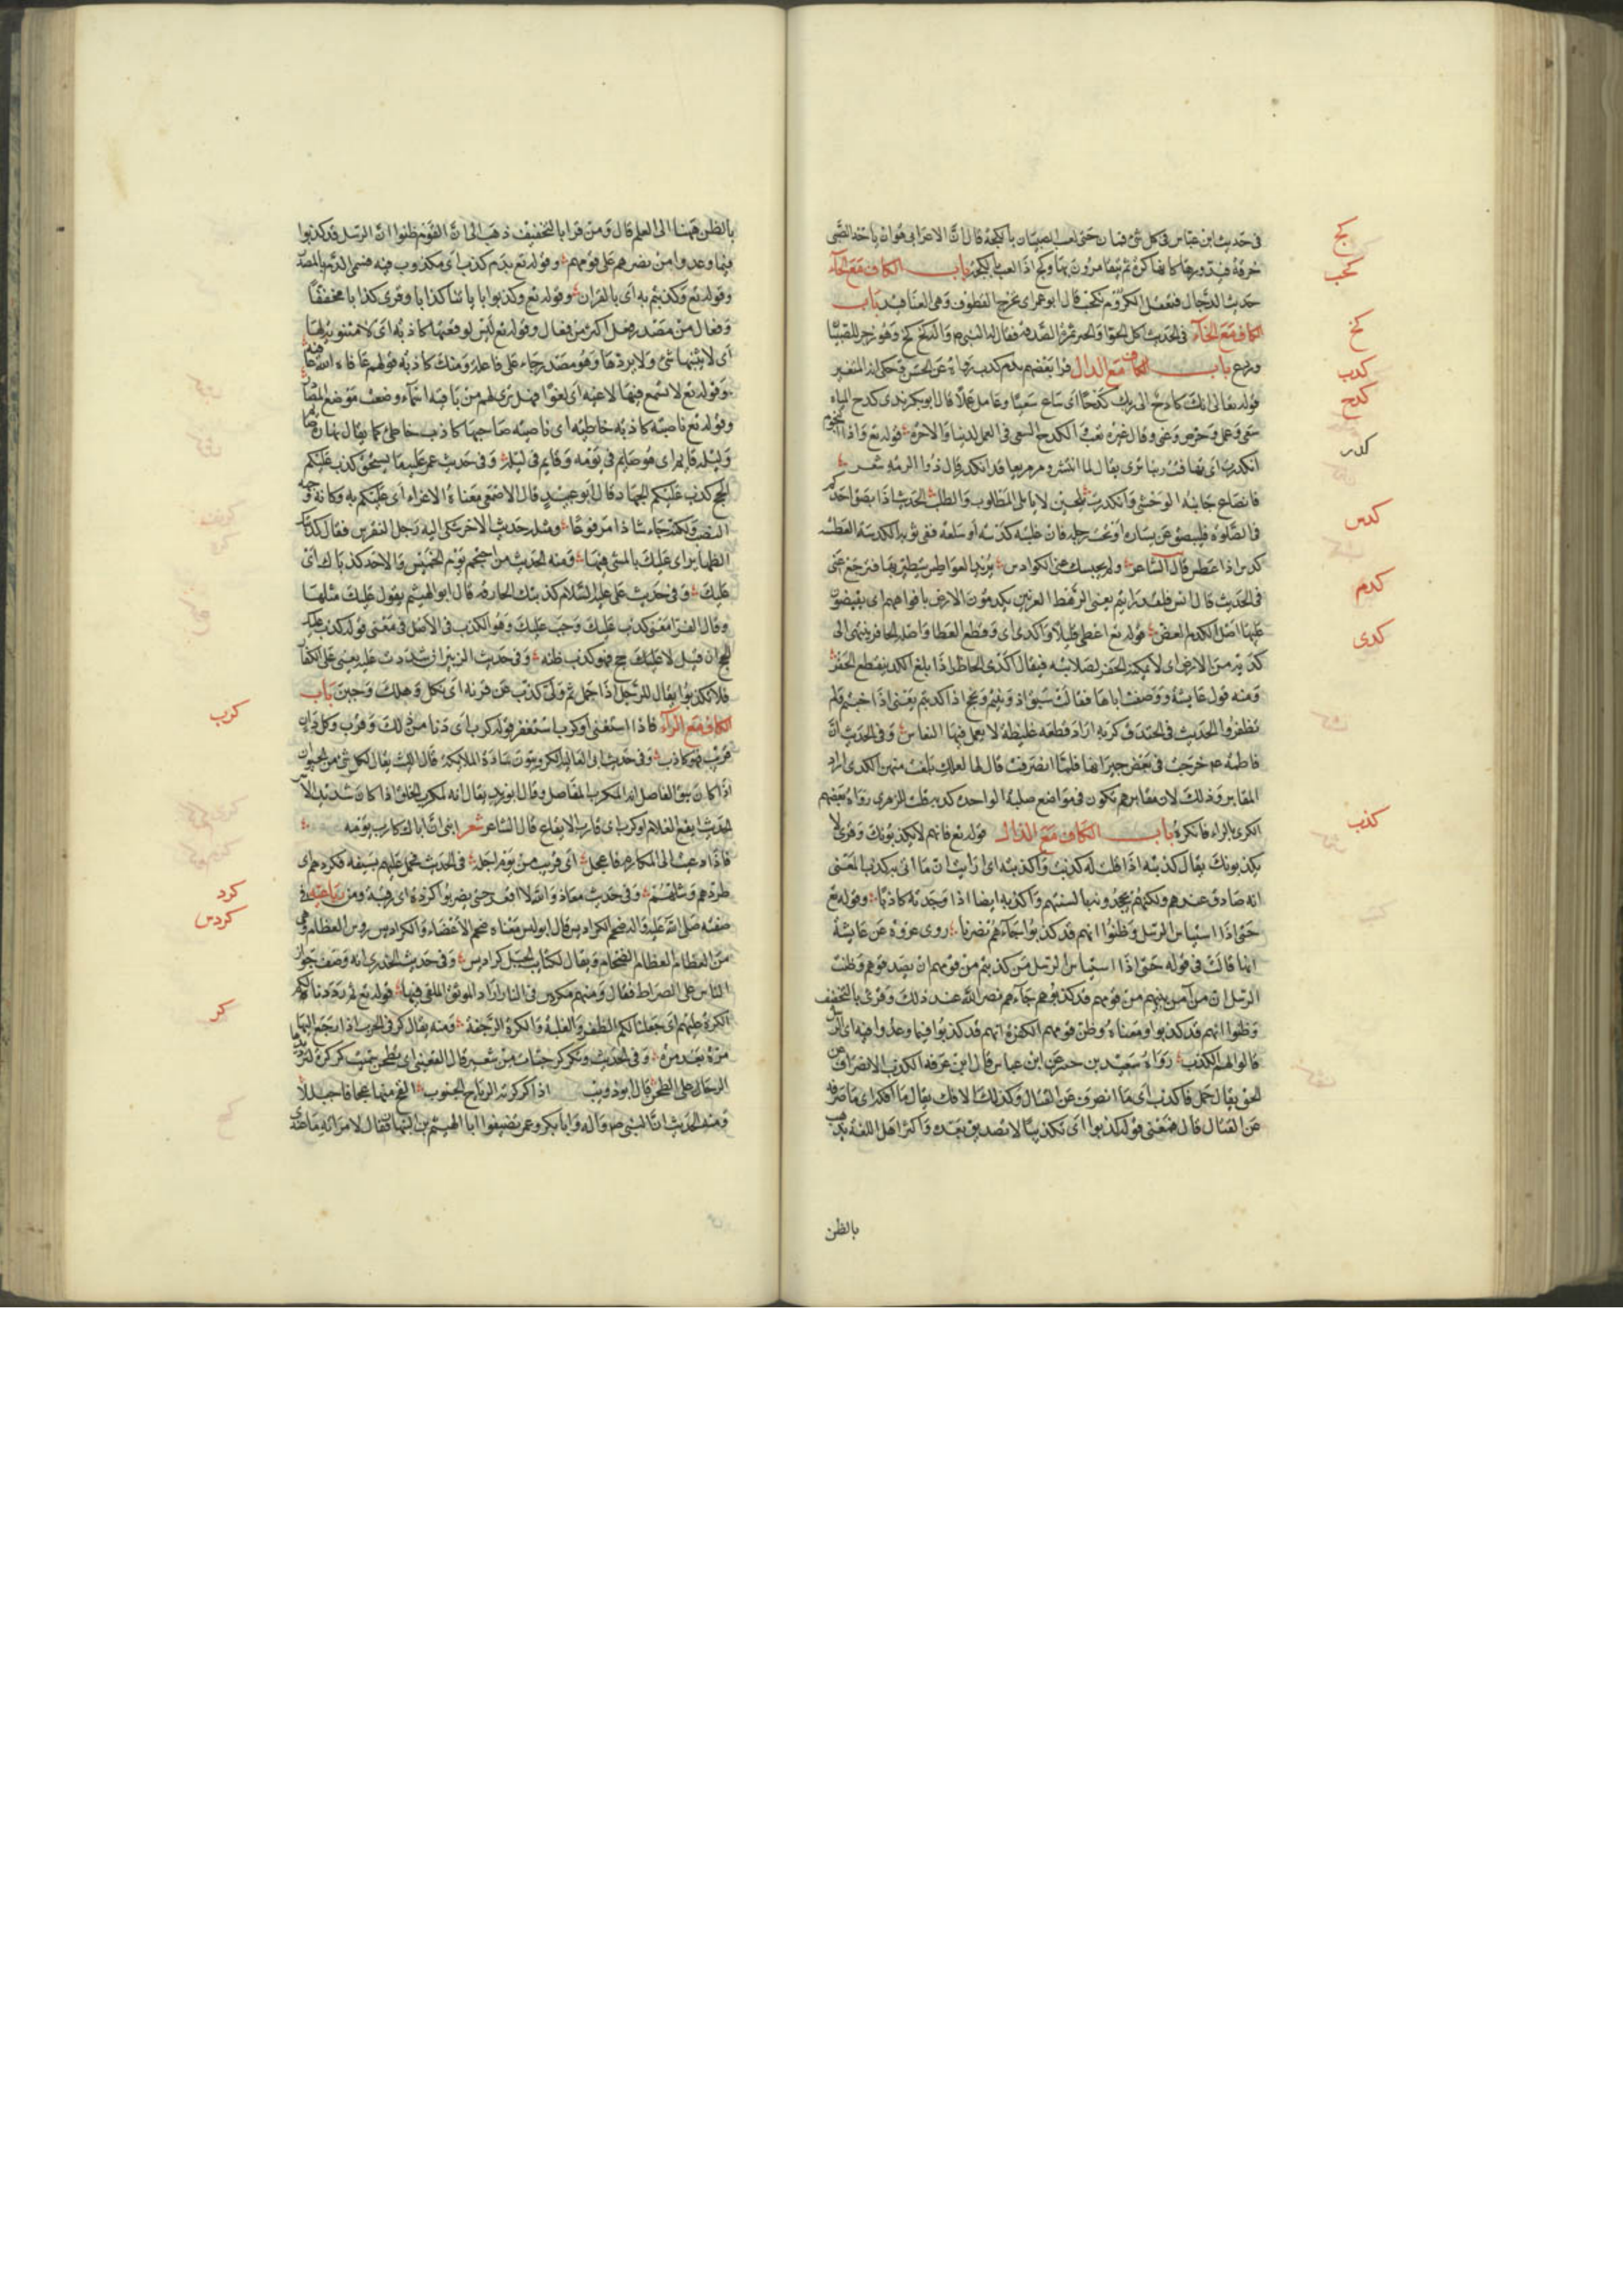 في حديث ابن عباس في كل شئ قمار حتى لعب الصبيان بالكجة قال ان الاعرابي هو ان ياخذ الصبى
خرقة فيدورها كانها كرة ثم يتقامرون بها وكج اذا لعب بالكجة باب الكاف مع الحآء
حديث الدجال فتعقل الكروم ثم تكحب قال ابو عمر اى تخرج القطوف وهى العناقيد باب
الكاف مع الخآء في الحديث اكل الحسن او الحسين تمرة الصدقة فقال له النبى ص وآله كخ كخ وهو زجر للصبيان
وردع باب الكاف مع الدال قرا بعضهم بدم كدب رواة عن الحسن وحكى انه المتغير
قوله تعالى انك كادح الى ربك كدحا اى ساع سعيا وعامل عملا قال ابو بكر
سعى وعمل وحرص وعنى وقال غيره تعب والكدح السعى في العمل لدنيا والاخرة قوله تع واذا النجوم
انكدرت اى تهافت وتناثرت يقال لما انتشر ومر مر سريعا قد انكدر قال ذو الرمة شعر
فانصاع جانبه الوحشى وانكدرت يلحبن لا ياتلى المطلوب والطلب الحديث اذا بصق احدكم
فى الصلوة فليبصق عن يساره او تحت رجله فان غلبته كدسة او سعلة ففى ثوبه الكدسة العطسة
كدس اذا عطس قال الشاعر ولم يحبسك عنى الكوادس يريد العواطس يتطير بها فترجع عنى
فى الحديث قال انس فلقد رايتم يعنى الرهط العرنيين يكدمون الارض بافواههم اى يقبضون
عليها اصل الكدم العض قوله تع اعطى قليلا واكدى اى وقطع العطا واصله الحافر ينتهى الى
كدية من الارض اى لا يمكنه الحفر لصلابته فيقال اكدى الحافر اذا بلغ الكدية فقطع الحفر
ومنه قول عايشة ووصفت اباها فقالت سبق اذ ونيتم ونجح اذ اكديتم تعنى اذا خبتم فلم
تظفروا الحديث في الخندق كدية اراد قطعة غليظة لا يعمل فيها الفاس وفى الحديث ان
فاطمة عم خرجت في بعض جيرانها فلما انصرفت قال لها لعلك بلغت معهن الكدى اراد
المقابر وذلك لان مقابرهم تكون في مواضع صلبة الواحد كدية قلت الزهرى رواه بعضهم
الكرى بالراء فانكره باب الكاف مع الذال قوله تع فانهم لا يكذبونك وقرئ لا
يكذبونك يقال كذبته اذا قلت له كذبت واكذبته اى رايت ان ما اتى به كذب المعنى
انه صادق عندهم ولكنهم يجحدونه بالسنتهم واكذبه ايضا اذا وجدته كاذبا وقوله تع
حتى اذا استيأس الرسل وظنوا انهم قد كذبوا جآءهم نصرنا روى عروة عن عايشة
انها قالت في قوله حتى اذا استيأس الرسل من كذبهم من قومهم ان يصدقوهم وظنت
الرسل ان من آمن بهم من قومهم قد كذبوهم جآءهم نصر الله عند ذلك وقرئ بالتخفيف
وظنوا انهم قد كذبوا ومعناه وظن قومهم الكفرة انهم قد كذبوا فيما وعدوا فيه اى ان
قالوا لهم الكذب رواه سعيد بن جبير عن ابن عباس قال ابن عرفة الكذب الانصراف عن
الحق يقال حمل فما كذب اى ما انصرف عن القتال وكذلك الافك يقال ما افكه اى ما صرفه
عن القتال قال فمعنى قوله كذبوا اى تكذيبا لا تصديق بعده واكثر اهل اللغة يذهب
بالظن
كج
كحب
كخ
كدب
كدح
كدر
كدس
كدم
كدى
كذب
بالظن ههنا الى العلم قال ومن قرا بالتخفيف ذهب الى ان القوم ظنوا ان الرسل قد كذبوا
فيما وعدوا من نصرهم على قومهم وقوله تع بدم كذب اى مكذوب فيه فسمى الدم بالمصدر
وقوله تع وكذبتم به اى بالقران وقوله تع وكذبوا باياتنا كذابا وقرى كذابا مخففا
وفعال من مصدر فعل اكثر من فعال وقوله تع ليس لوقعتها كاذبة اى لا مثنوية لها
اى لا يثنيها شئ ولا يردها وهو مصدر جاء على فاعلة ومثله كاذبة قولهم عافاه الله عافية
وقوله تع لا تسمع فيها لاغية اى لغوا فهل ترى لهم من باقية اسماء وضعت موضع المصادر
وقوله تع ناصية كاذبة خاطئة اى ناصية صاحبها كاذب خاطئ كما يقال نهاره صايم
وليله قايم اى هو صايم في يومه وقايم في ليله وفى حديث عمر عليه ما يستحق كذب عليكم
الحج كذب عليكم الجهاد قال ابو عبيد قال الاصمعى معناه الاغراء اى عليكم به وكانه وجهه
النصب ولكنه جاء شاذا مرفوعا ومثله حديث الاخر شكى اليه رجل النقرس فقال كذبتك
الظهاير اى عليك بالمشى فيها ومنه الحديث من احتجم فيوم الخميس والاحد كذباك اى
عليك وفى حديث على عليه السلام كذبتك الحارقة قال ابو الهيثم يقول عليك مثلها
وقال الفرا معنى كذب عليك وجب عليك وهو الكذب في الاصل في معنى قوله كذب عليك
الحج ان قيل لا عليك حج فهو كذب ظنه وفى حديث الزبير ان شددت عليه يعنى على الكفار
فلا تكذبوا يقال للرجل اذا حمل ثم ولى كذب عن قرنه اى نكل وهلك وجبن باب
الكاف مع الرآء فاذا استغنى او كرب استعفف قوله كرب اى دنا من ذلك وقرب وكل دان
قريب فهو كارب وفى حديث ابى العالية الكروبيون سادة الملائكة قال الليث يقال لكل شئ من الحيوان
اذا كان موثق المفاصل انه المكرب المفاصل وقال ابو زيد يقال انه لمكرب الخلق اذا كان شديد الاسر
الحديث ايفع الغلام او كرب اى قارب الايفاع قال الشاعر شعر ابنى ان اباك كارب يومه
فاذا دعيت الى المكارم فاعجل اى قريب من يوم اجله في الحديث حمل عليهم بسيفه فكردهم اى
طردهم وشلهم وفى حديث معاذ والله لا اقعد حتى تضربوا كرده اى رقبته ومن رباعيه في
صفته صلى الله عليه وآله ضخم الكراديس قال ابو ليس معناه ضخم الاعضاء والكراديس روس العظام وهى
من العظام العظام الضخام ويقال لكتائب الخيل كراديس وفى حديث الخدرى انه وصف جواز
الناس على الصراط فقال ومنهم مكردس في النار اراد الموثق الملقى فيها قوله تع ثم رددنا لكم
الكرة عليهم اى جعلنا لكم الظفر والغلبة والكرة الرجعة ومنه يقال كر في الحرب اذا رجع اليها
مرة بعد مرة وفى الحديث وتكركر حبات من شعير قال القعنبى اى تطحن سميت كركرة لترديد
الرحا على الطحن قال ابو ذويب اذا كركرته الرياح الجنوب القح منها عجافا حيالا
ومنه الحديث ان النبى ص وآله وابا بكر وعمر تضيفوا ابا الهيثم بن التيهان فقال لامراته ما عندك
كرب
كرد
كردس
كر